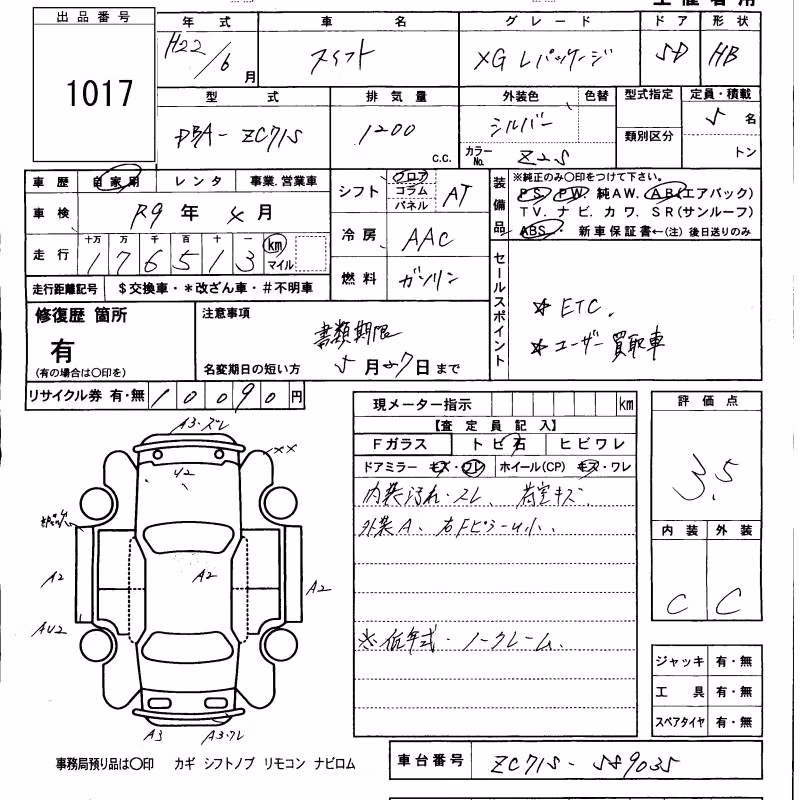 出品番号
1017
年式 車名 グレード ドア 形状
H22/6月 スイフト XG Lパッケージ 5D HB
型式 排気量 外装色 色替 型式指定 定員・積載
類別区分
DBA-ZC71S 1200 c.c. シルバー 5名
カラーNo. Z2S トン
車歴 自家用 レンタ 事業.営業車
車検 R9年 4月
走行 十万 万 千 百 十 一
176513 km マイル
走行距離記号 $交換車・*改ざん車・#不明車
シフト フロア コラム パネル AT
冷房 AAC
燃料 ガソリン
装備品
※純正のみ〇印をつけて下さい。
PS. PW. 純AW. AB(エアバック)
TV. ナビ. カワ. SR(サンルーフ)
ABS. 新車保証書←(注) 後日送りのみ
セールスポイント
☆ ETC.
☆ ユーザー買取車
修復歴 箇所
有
(有の場合は〇印を)
注意事項
書類期限
名変期日の短い方 5月27日まで
リサイクル券 有・無 10090円
現メーター指示 km
【査定員記入】
Fガラス トビ石 ヒビワレ
ドアミラー キズ・ワレ ホイール(CP) キズ・ワレ
内装汚れ・スレ、荷室キズ
外装A、右FピラーU小、
※低年式・ノークレーム、
評価点
3.5
内装 外装
C C
ジャッキ 有・無
工具 有・無
スペアタイヤ 有・無
A3・ズレ
XX
U2
A2
A2
A2
AU2
A3
A3・ワレ
事務局預り品は〇印 カギ シフトノブ リモコン ナビロム
車台番号 ZC71S-589035